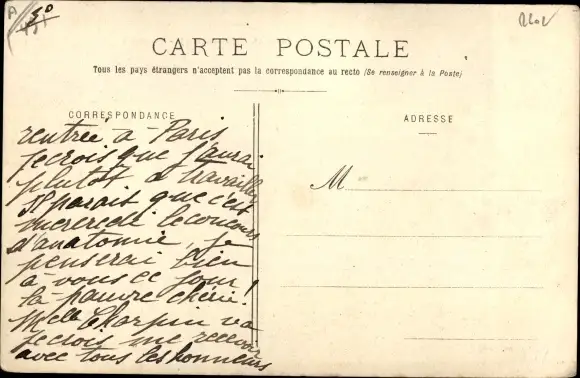 CARTE POSTALE
Tous les pays étrangers n'acceptent pas la correspondance au recto (Se renseigner à la Poste)
CORRESPONDANCE
rentrée à Paris,
je crois que j'aurai
plutôt à travailler
Il parais que c'est
mercredi le concours
d'anatomie, je
penserai bien
à vous ce jour !
ta pauvre chérie.
Melle Charpin va
je crois me recevoir
avec tous les honneurs
ADRESSE
M